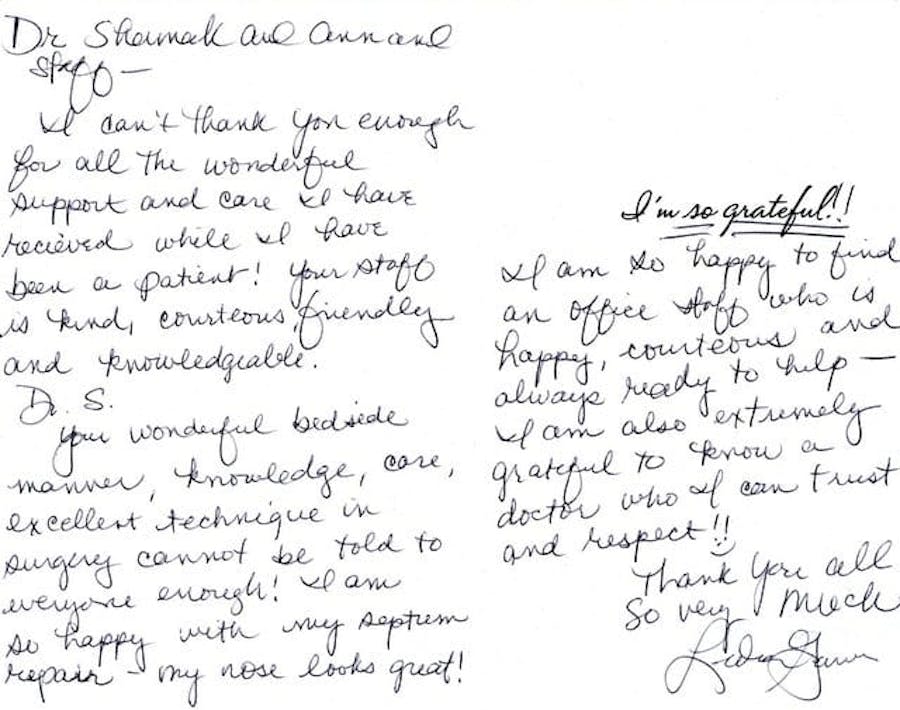 Dr Shamak and Ann and
staff —
I can't thank you enough
for all the wonderful
support and care I have
recieved while I have
been a patient! Your staff
is kind, courteous, friendly
and knowledgeable.
Dr. S.
Your wonderful bedside
manner, knowledge, care,
excellent technique in
surgery cannot be told to
everyone enough! I am
so happy with my septum
repair - my nose looks great!
I'm so grateful!!
I am so happy to find
an office staff who is
happy, courteous and
always ready to help —
I am also extremely
grateful to know a
doctor who I can trust
and respect!!
Thank you all
so very much